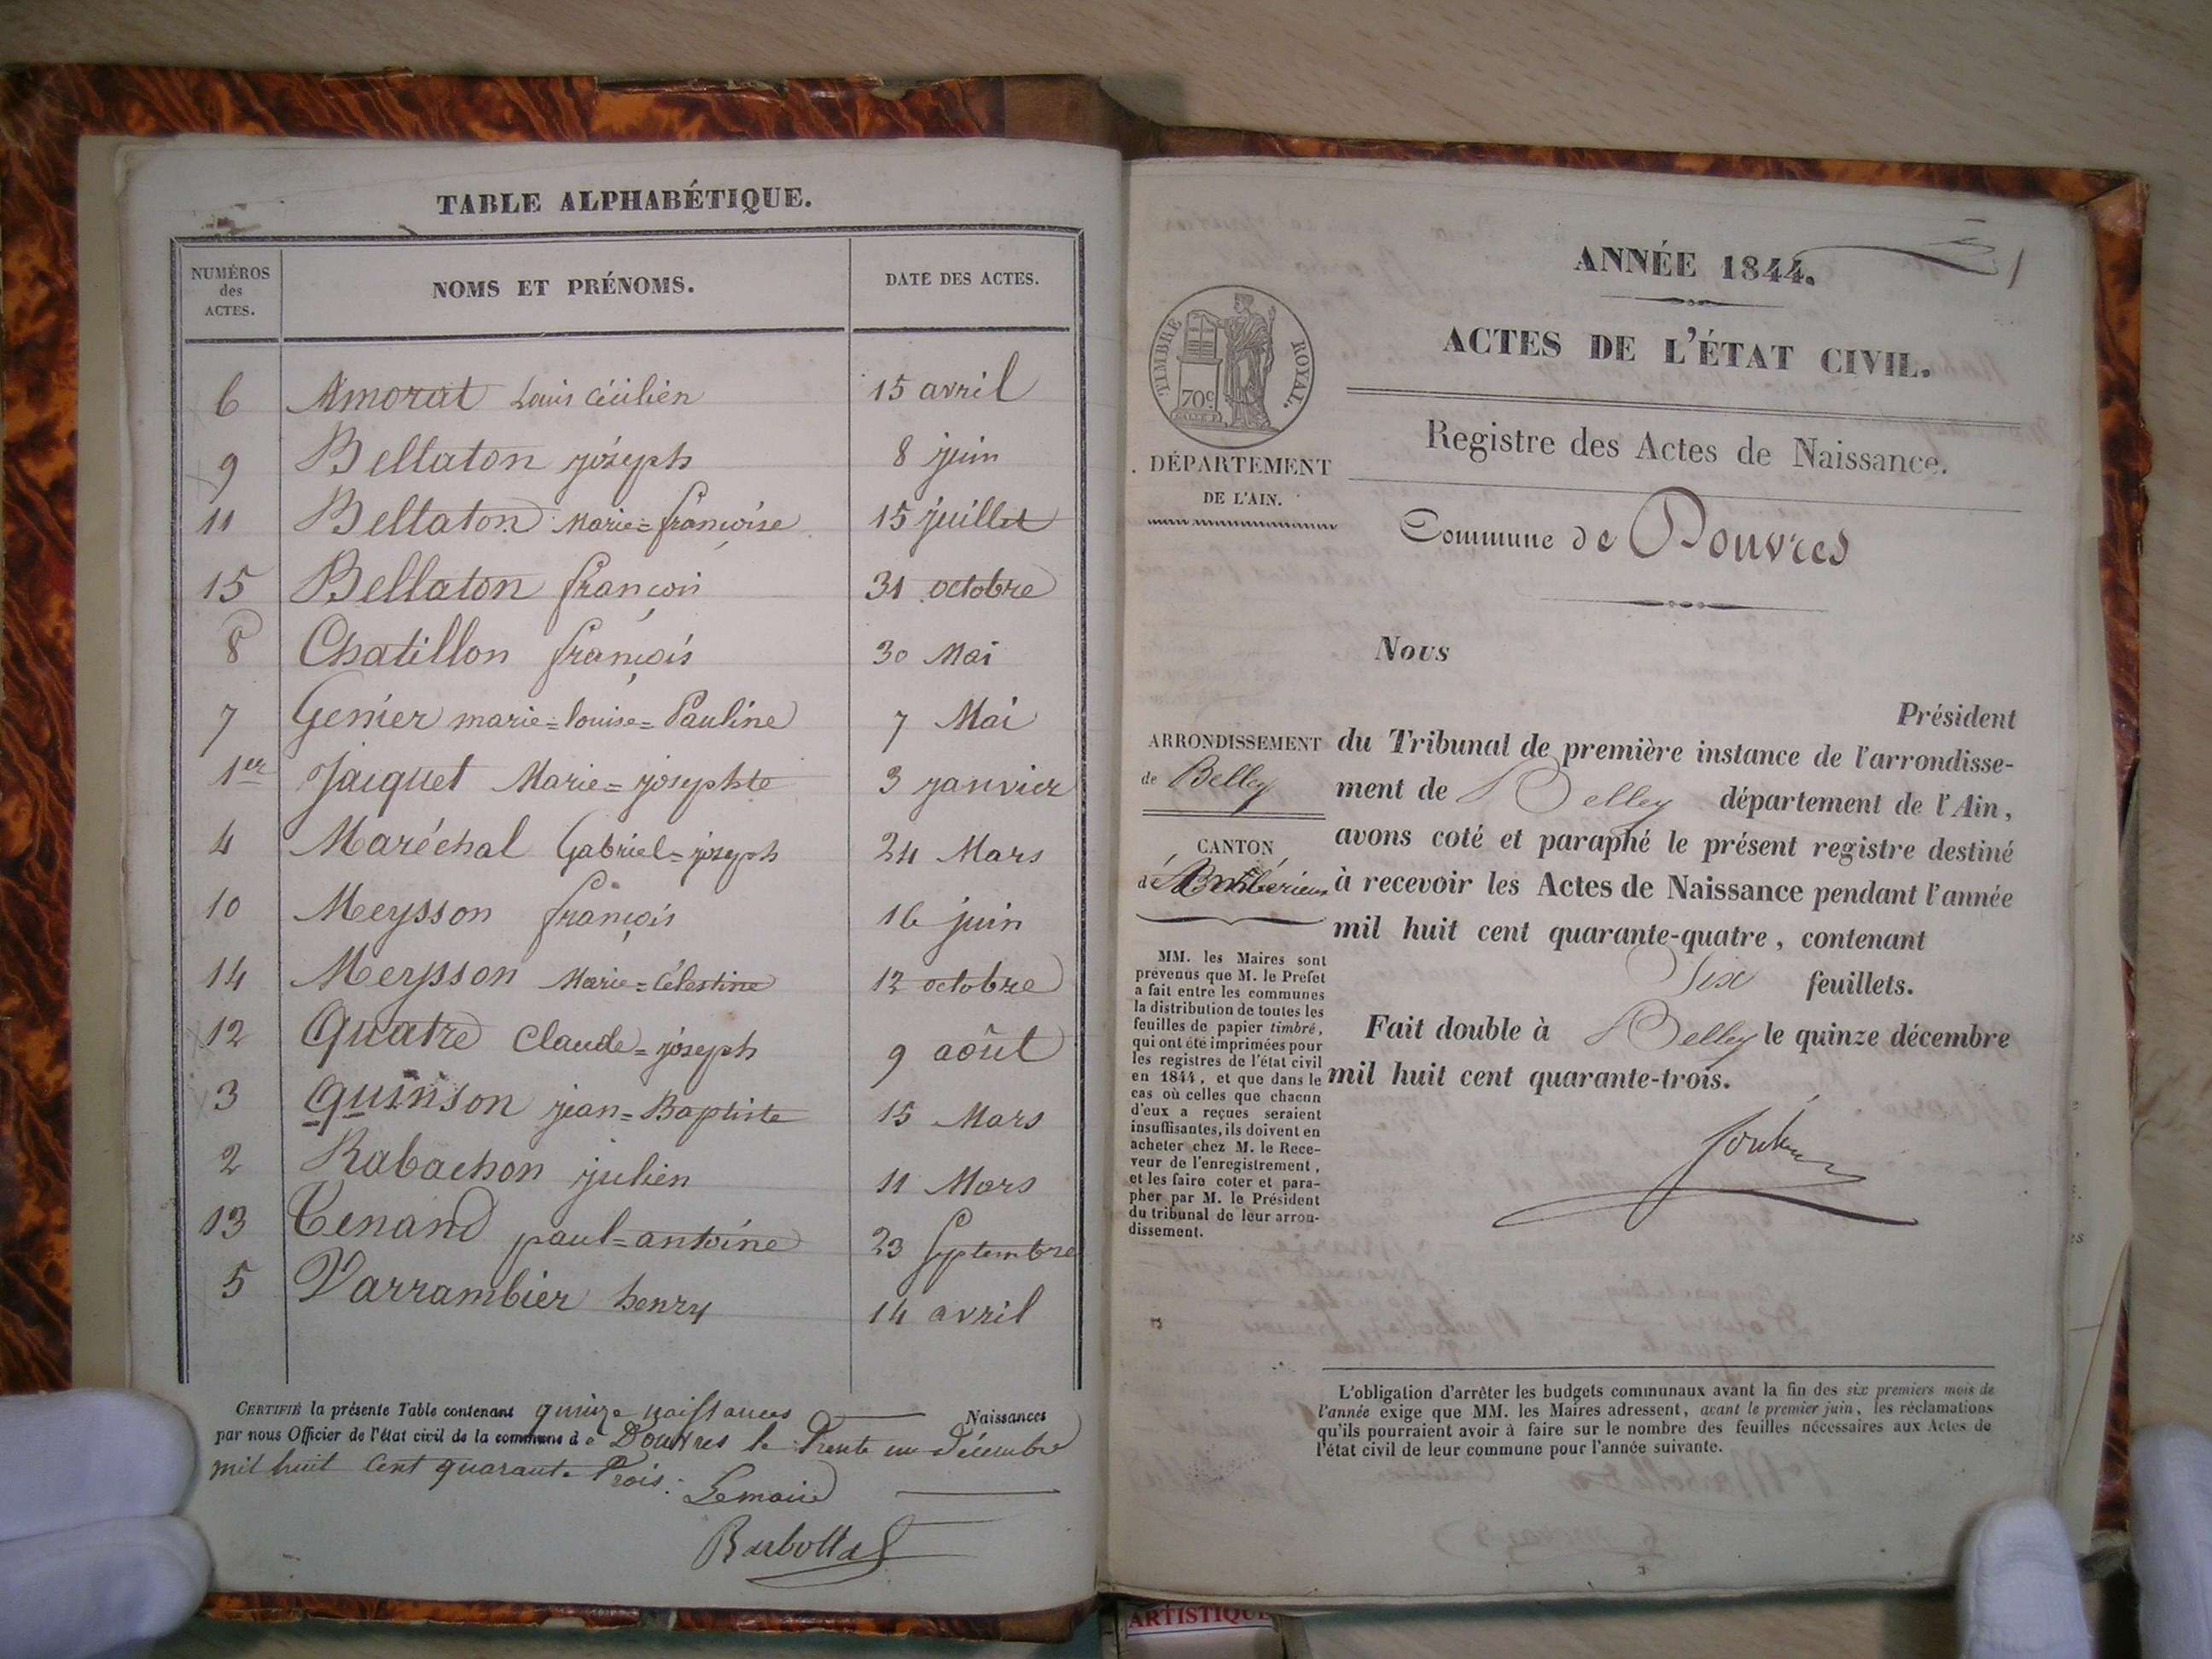 TABLE ALPHABÉTIQUE.
NUMÉROS des ACTES. NOMS ET PRÉNOMS. DATE DES ACTES.
6 Amorat Louis Cécilien 15 avril
9 Bellaton joseph 8 juin
11 Bellaton Marie=françoise 15 juillet
15 Bellaton françois 31 octobre
8 Chatillon françois 30 Mai
7 Genier marie=louise=Pauline 7 Mai
1er Jacquet Marie=josephte 3 janvier
4 Maréchal Gabriel=joseph 24 Mars
10 Meysson françois 16 juin
14 Meysson Marie=Célestine 12 octobre
12 Quatre Claude=joseph 9 août
3 Quinson jean=Baptiste 15 Mars
2 Rabachon julien 11 Mars
13 Tenand paul=antoine 23 Septembre
5 Varrambier henry 14 avril
CERTIFIÉ la présente Table contenant quinze naissances Naissances
par nous Officier de l'état civil de la commune de Douvres le Trente un Décembre
mil huit Cent quarante Trois.
Le maire
Barbollat
ANNÉE 1844.
1
ACTES DE L'ÉTAT CIVIL.
TIMBRE ROYAL.
70c
Registre des Actes de Naissance.
DÉPARTEMENT
DE L'AIN.
Commune de Douvres
Nous
Président
ARRONDISSEMENT
de Belley
CANTON
d'Ambérieu
du Tribunal de première instance de l'arrondisse-
ment de Belley département de l'Ain,
avons coté et paraphé le présent registre destiné
à recevoir les Actes de Naissance pendant l'année
mil huit cent quarante-quatre, contenant
Six feuillets.
Fait double à Belley le quinze décembre
mil huit cent quarante-trois.
MM. les Maires sont
prévenus que M. le Préfet
a fait entre les communes
la distribution de toutes les
feuilles de papier timbré,
qui ont été imprimées pour
les registres de l'état civil
en 1844, et que dans le
cas où celles que chacun
d'eux a reçues seraient
insuffisantes, ils doivent en
acheter chez M. le Rece-
veur de l'enregistrement,
et les faire coter et para-
pher par M. le Président
du tribunal de leur arron-
dissement.
L'obligation d'arrêter les budgets communaux avant la fin des six premiers mois de
l'année exige que MM. les Maires adressent, avant le premier juin, les réclamations
qu'ils pourraient avoir à faire sur le nombre des feuilles nécessaires aux Actes de
l'état civil de leur commune pour l'année suivante.
ARTISTIQUE